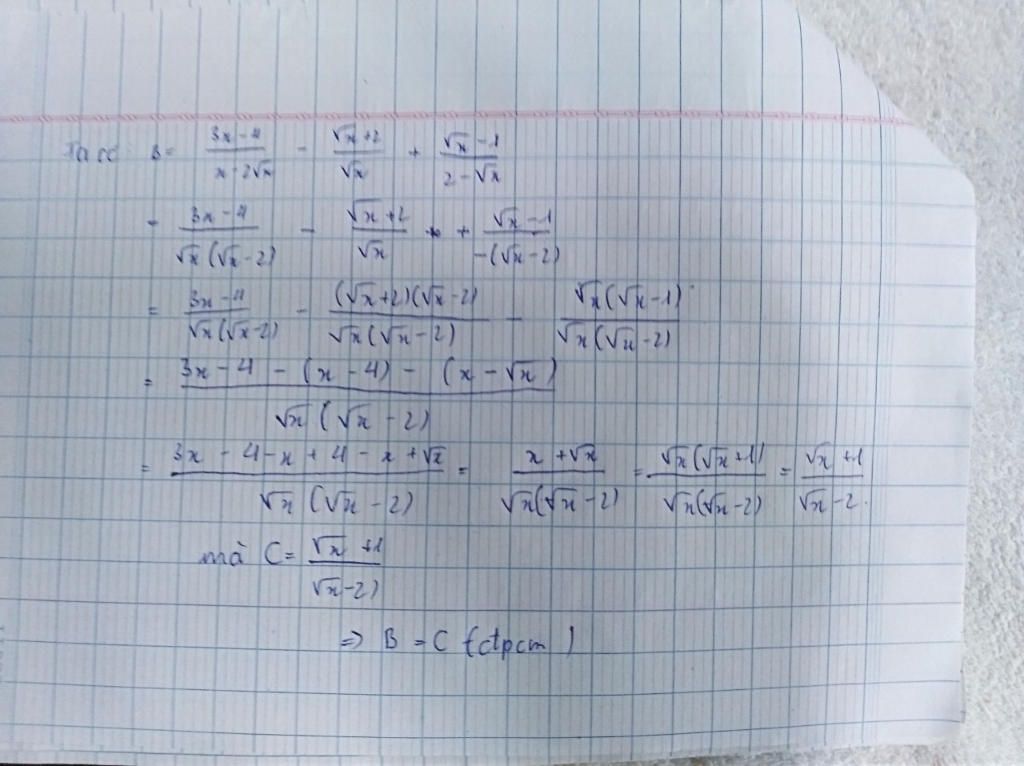 Ta có B = (3x-4)/(x-2√x) - (√x+2)/√x + (√x-1)/(2-√x)
= (3x-4)/(√x(√x-2)) - (√x+2)/√x + (√x-1)/(-(√x-2))
= (3x-4)/(√x(√x-2)) - ((√x+2)(√x-2))/(√x(√x-2)) - (√x(√x-1))/(√x(√x-2))
= (3x-4-(x-4)-(x-√x))/(√x(√x-2))
= (3x-4-x+4-x+√x)/(√x(√x-2)) = (x+√x)/(√x(√x-2)) = (√x(√x+1))/(√x(√x-2)) = (√x+1)/(√x-2).
mà C = (√x+1)/(√x-2)
=> B = C (đpcm)